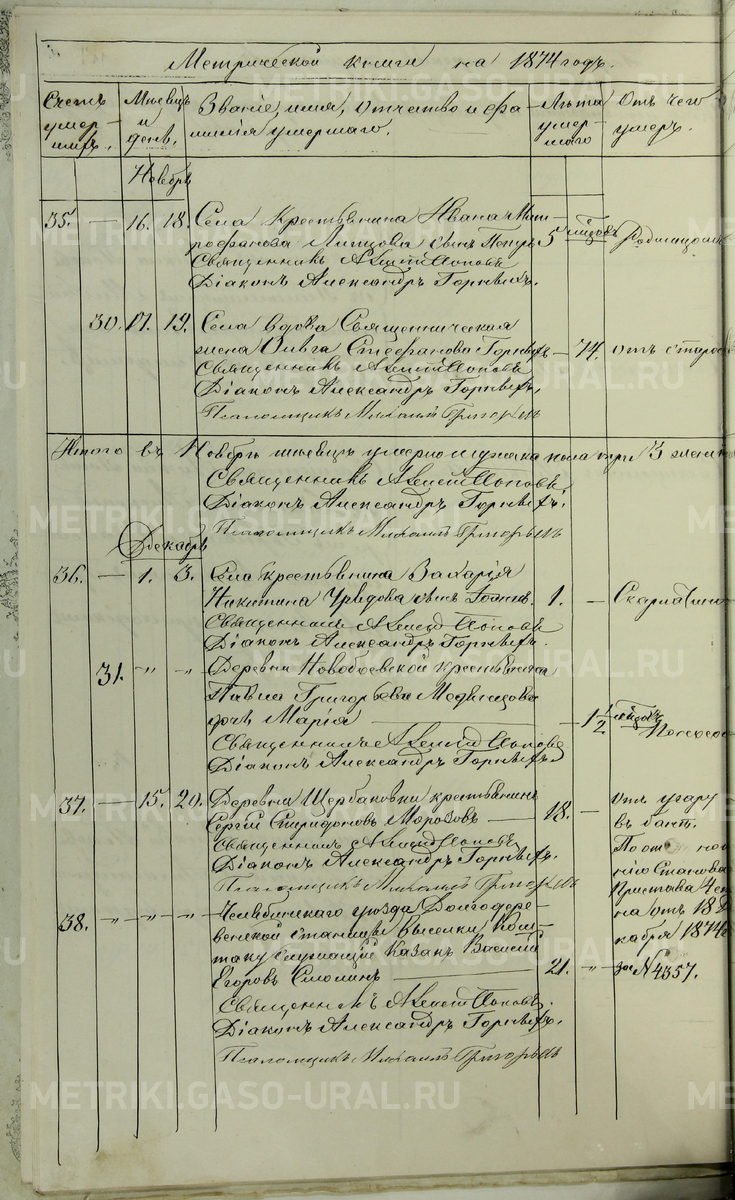 Метрической книги на 1874 годъ.
Счетъ умер-шихъ.
Мѣсяцъ и день.
Званіе, имя, отчество и фа-
милія умершаго.
Лѣта умер-шаго
Отъ чего умеръ.
Ноябрь
35. — 16. 18. Села Крестьянина Ивана Мит-
рофанова сынъ Петръ 5 мѣсяц.
Священникъ Алексѣй Поповъ
Діаконъ Александръ Горныхъ.
30. 17. 19. Села вдова Священническая
жена Ольга Стефанова Горныхъ — 74. отъ старос
Священникъ Алексѣй Поповъ
Діаконъ Александръ Горныхъ.
Псаломщикъ Михаилъ Григорьевъ
Итого въ Ноябрѣ мѣсяцѣ умерло мужска пола три 3 женск
Священникъ Алексѣй Поповъ.
Діаконъ Александръ Горныхъ.
Псаломщикъ Михаилъ Григорьевъ
Декабрь
36. — 1. 3. Села крестьянина Захарія
Никитина сынъ Іоаннъ. 1. —
Священникъ Алексѣй Поповъ
Діаконъ Александръ Горныхъ.
31. " " Деревни крестьянина
Павла Григорьева Медвѣдева
дочь Марія — 1 1/2
Священникъ Алексѣй Поповъ
Діаконъ Александръ Горныхъ
37. — 15. 20. Деревни Щербаковки крестьянинъ
Сергій Спиридоновъ Морозовъ — 18. — отъ угару
въ банѣ.
Священникъ Алексѣй Поповъ
Діаконъ Александръ Горныхъ.
Псаломщикъ Михаилъ Григорьевъ
По отно
нію Станова
Пристава 4 ст
на отъ 18 Де
кабря 1874
за № 4357.
38. " " " Челябинскаго уѣзда Долгодере-
венской станицы выселки
служащій Казакъ Василій
Егоровъ Смолинъ — 21. "
Священникъ Алексѣй Поповъ.
Діаконъ Александръ Горныхъ.
Псаломщикъ Михаилъ Григорьевъ
METRIKI.GASO-URAL.RU